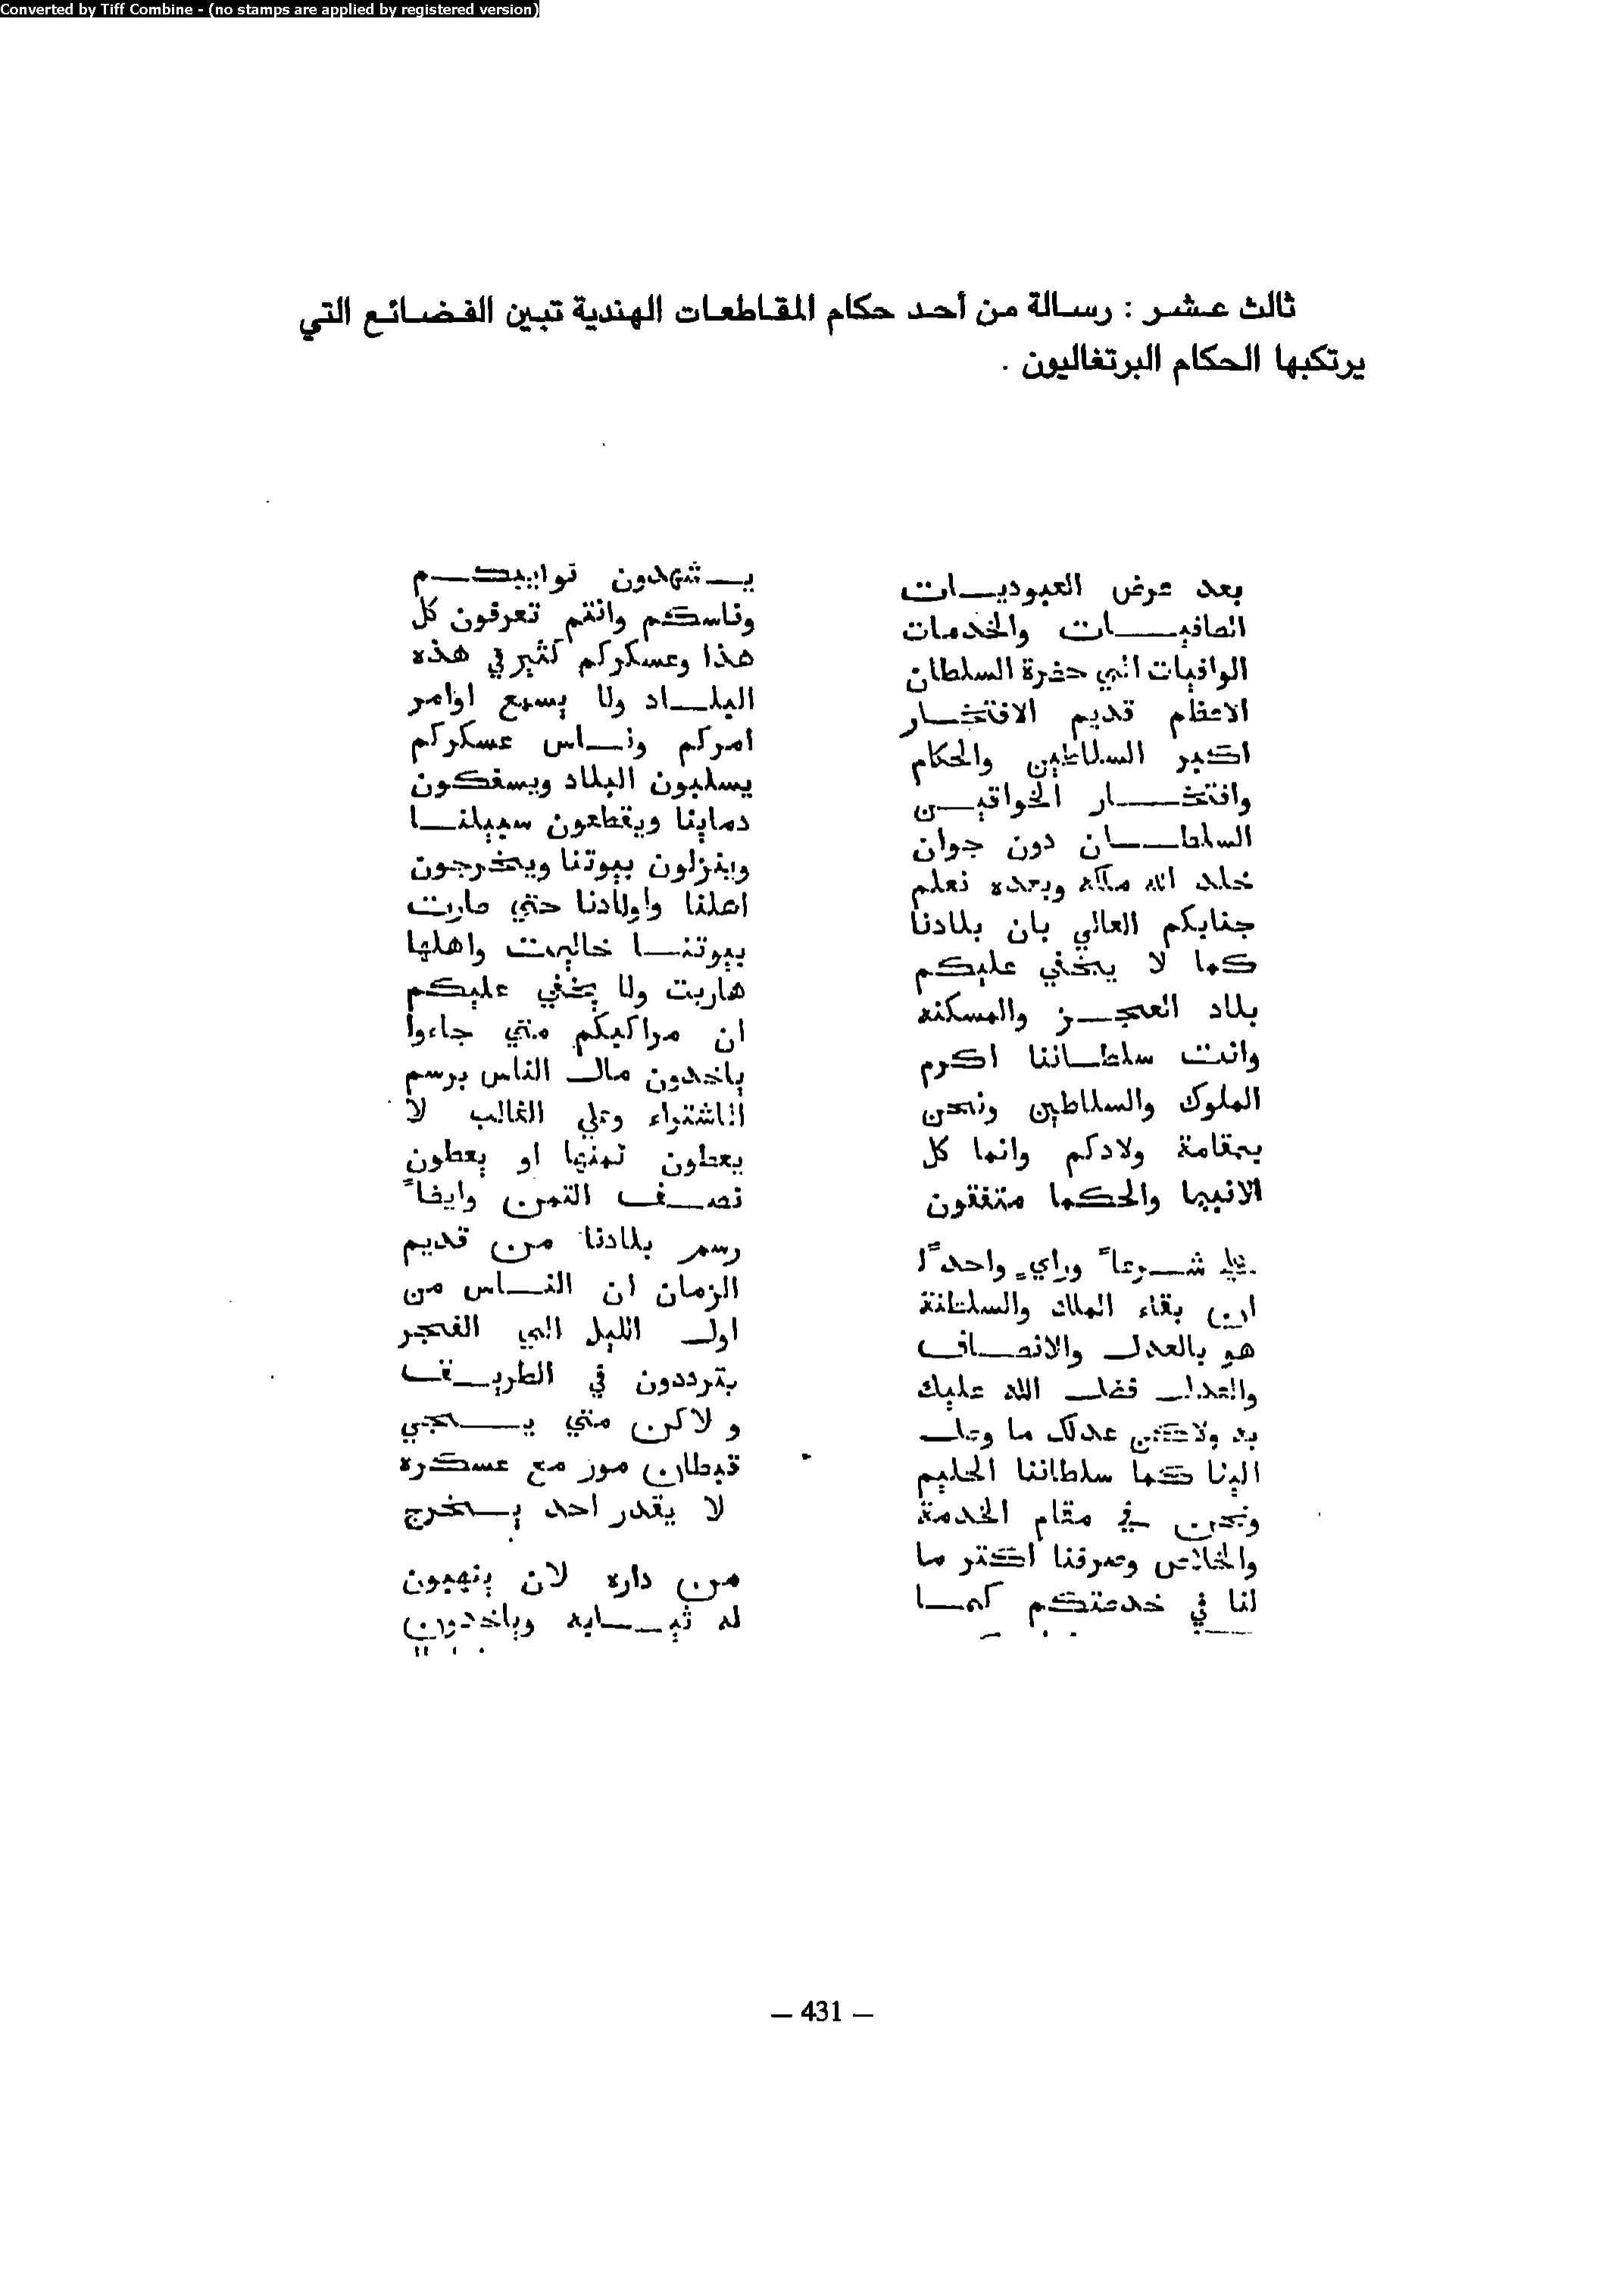 Converted by Tiff Combine - (no stamps are applied by registered version)
ثالث عشر : رسالة من أحد حكام المقاطعات الهندية تبين الفضائع التي
يرتكبها الحكام البرتغاليون .
بعد عرض العبوديات
الصافيات والخدمات
الوافيات الي حضرة السلطان
الاعظم قديم الافتخار
اكبر السلاطين والحكام
وافتخار الخواقين
السلطان دون جوان
خلد الله ملكه وبعده نعلم
جنابكم العالي بان بلادنا
كما لا يخفي عليكم
بلاد العجز والمسكنه
وانت سلطاننا اكرم
الملوك والسلاطين ونحن
بمقامة ولادكم وانما كل
الانبيا والحكما متفقون
شرعاً وراي واحداً
ان بقاء الملك والسلطنة
هو بالعدل والانصاف
والعدل فضل الله عليك
به ولاكن عدلك ما وصل
الينا كما سلطاننا الحليم
ونحن في مقام الخدمة
والخلاص وصرفنا اكتر ما
لنا في خدمتكم كما
يشهدون توابيكم
وناسكم وانتم تعرفون كل
هذا وعسكركم كثير في هذه
البلاد ولا يسمع اوامر
امركم وناس عسكركم
يسلبون البلاد ويسفكون
دماينا ويقطعون سبيلنا
وينزلون بيوتنا ويخرجون
اهلنا واولادنا حتي صارت
بيوتنا خاليت واهلها
هاربت ولا يخفي عليكم
ان مراكبكم متي جاءوا
ياخدون مال الناس برسم
الاشتراء وعلي الغالب لا
يعطون ثمنها او يعطون
نصف الثمن وايضاً
رسم بلادنا من قديم
الزمان ان الناس من
اول الليل الي الفجر
يترددون في الطريق
و لاكن متي يجي
قبطان موز مع عسكره
لا يقدر احد يخرج
من داره لان ينهبون
له ثيابه وياخدون
— 431 —